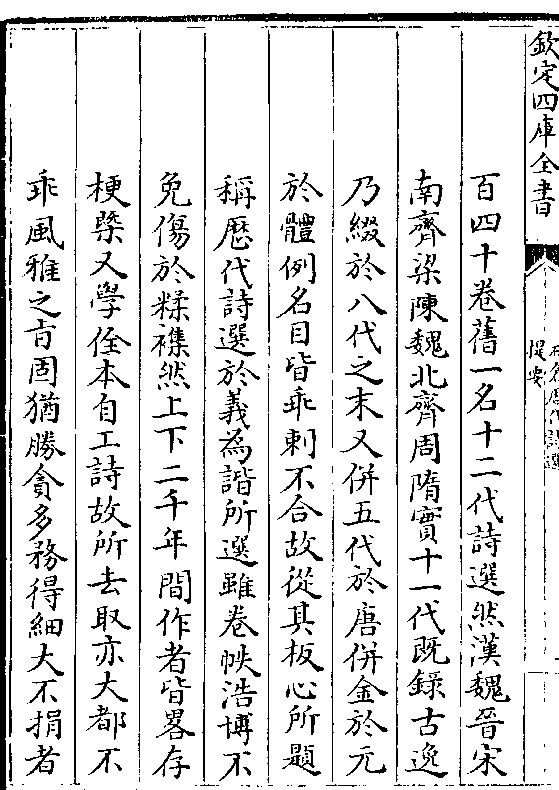 欽定四庫全書
提要
百四十卷舊一名十二代詩選然漢魏晉宋
南齊梁陳魏北齊周隋實十一代既錄古逸
乃綴於八代之末又併五代於唐併金於元
於體例名目皆乖剌不合故從其板心所題
稱歷代詩選於義為諧所選雖卷帙浩博不
免傷於糅襍然上下二千年間作者皆畧存
梗槩又學佺本自工詩故所去取亦大都不
乖風雅之㫖固猶勝貪多務得細大不捐者